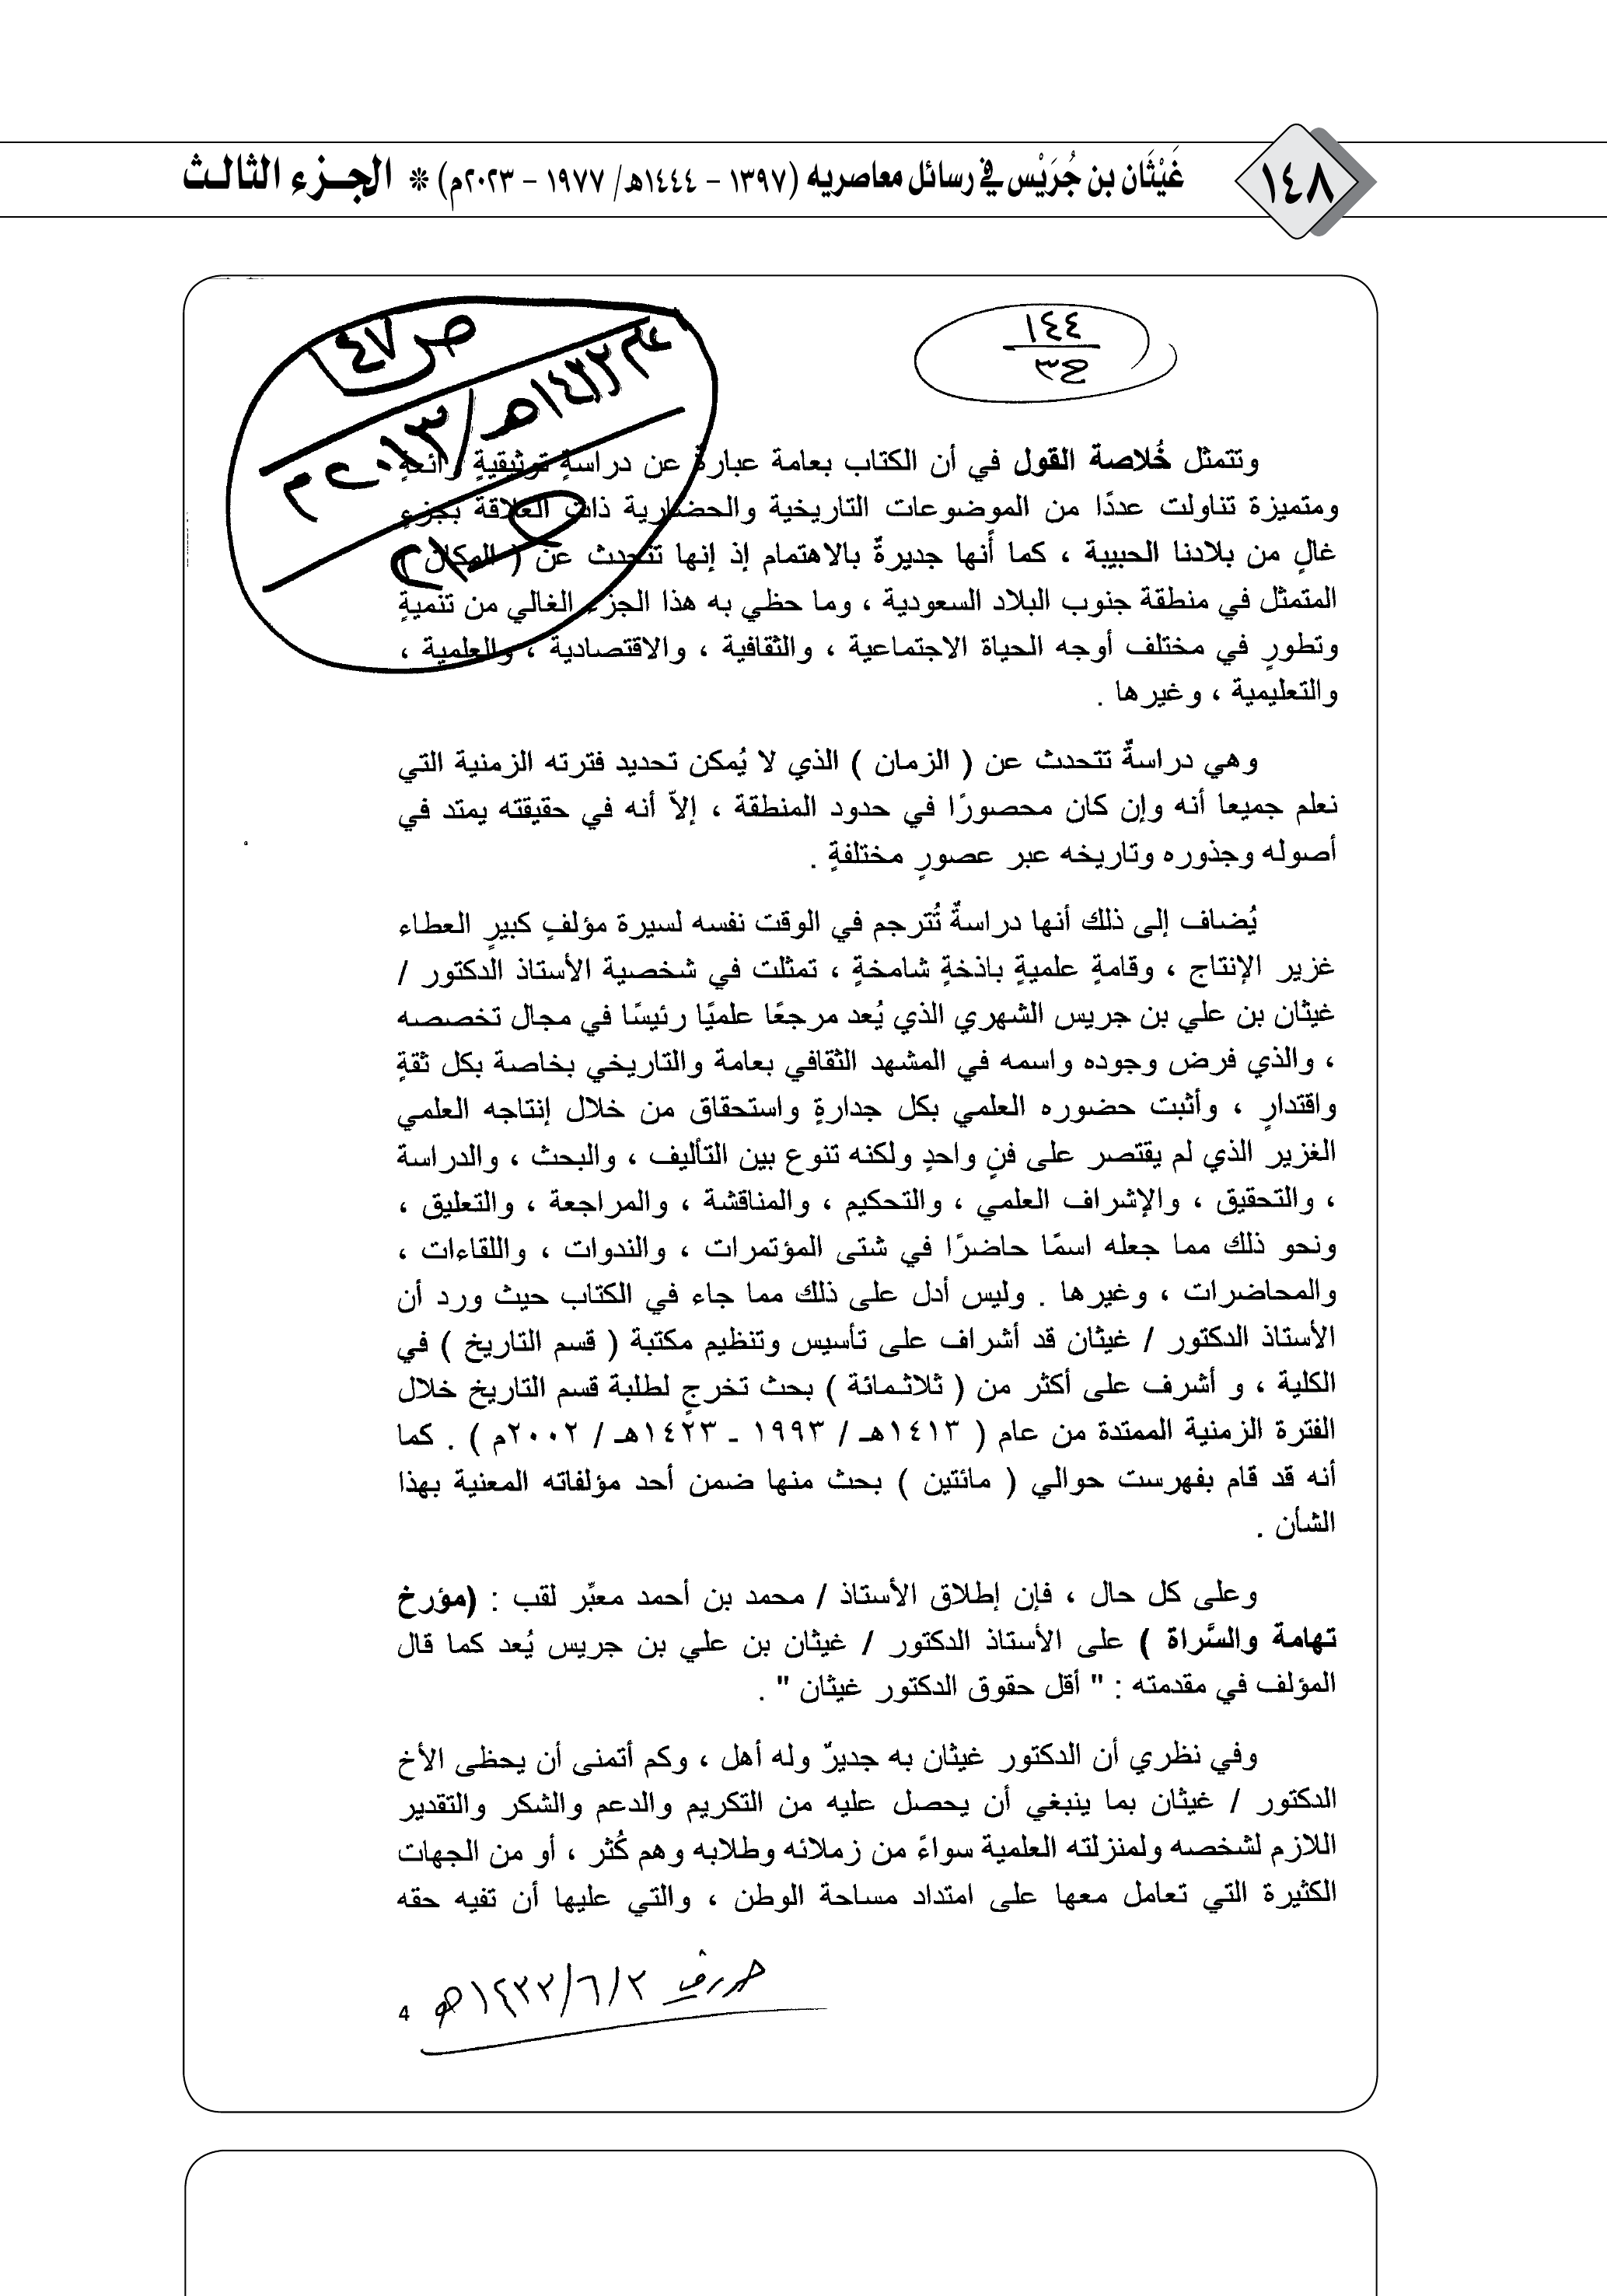 ١٤٨
غَيْثَان بن جُرَيْس في رسائل معاصريه (١٣٩٧ – ١٤٤٤هـ/ ١٩٧٧ – ٢٠٢٣م) * الجـزء الثالـث
١٤٤
ج٣
ص٤٧
عام ١٤٣٢هـ/٢٠١٣م
وتتمثل خُلاصة القول في أن الكتاب بعامة عبارة عن دراسةٍ توثيقيةٍ رائعةٍ
ومتميزة تناولت عددًا من الموضوعات التاريخية والحضارية ذات العلاقة بجزءٍ
غالٍ من بلادنا الحبيبة ، كما أنها جديرةٌ بالاهتمام إذ إنها تتحدث عن ( المكان )
المتمثل في منطقة جنوب البلاد السعودية ، وما حظي به هذا الجزء الغالي من تنميةٍ
وتطورٍ في مختلف أوجه الحياة الاجتماعية ، والثقافية ، والاقتصادية ، والعلمية ،
والتعليمية ، وغيرها .
وهي دراسةٌ تتحدث عن ( الزمان ) الذي لا يُمكن تحديد فترته الزمنية التي
نعلم جميعا أنه وإن كان محصورًا في حدود المنطقة ، إلاّ أنه في حقيقته يمتد في
أصوله وجذوره وتاريخه عبر عصورٍ مختلفةٍ .
يُضاف إلى ذلك أنها دراسةٌ تُترجم في الوقت نفسه لسيرة مؤلفٍ كبيرِ العطاء
غزير الإنتاج ، وقامةٍ علميةٍ باذخةٍ شامخةٍ ، تمثلت في شخصية الأستاذ الدكتور /
غيثان بن علي بن جريس الشهري الذي يُعد مرجعًا علميًا رئيسًا في مجال تخصصه
، والذي فرض وجوده واسمه في المشهد الثقافي بعامة والتاريخي بخاصة بكل ثقةٍ
واقتدارٍ ، وأثبت حضوره العلمي بكل جدارةٍ واستحقاق من خلال إنتاجه العلمي
الغزير الذي لم يقتصر على فنٍ واحدٍ ولكنه تنوع بين التأليف ، والبحث ، والدراسة
، والتحقيق ، والإشراف العلمي ، والتحكيم ، والمناقشة ، والمراجعة ، والتعليق ،
ونحو ذلك مما جعله اسمًا حاضرًا في شتى المؤتمرات ، والندوات ، واللقاءات ،
والمحاضرات ، وغيرها . وليس أدل على ذلك مما جاء في الكتاب حيث ورد أن
الأستاذ الدكتور / غيثان قد أشراف على تأسيس وتنظيم مكتبة ( قسم التاريخ ) في
الكلية ، و أشرف على أكثر من ( ثلاثمائة ) بحث تخرجٍ لطلبة قسم التاريخ خلال
الفترة الزمنية الممتدة من عام ( ١٤١٣هـ / ١٩٩٣ ـ ١٤٢٣هـ / ٢٠٠٢م ) . كما
أنه قد قام بفهرست حوالي ( مائتين ) بحث منها ضمن أحد مؤلفاته المعنية بهذا
الشأن .
وعلى كل حال ، فإن إطلاق الأستاذ / محمد بن أحمد معبِّر لقب : (مؤرخ
تهامة والسَّراة ) على الأستاذ الدكتور / غيثان بن علي بن جريس يُعد كما قال
المؤلف في مقدمته : " أقل حقوق الدكتور غيثان " .
وفي نظري أن الدكتور غيثان به جديرٌ وله أهل ، وكم أتمنى أن يحظى الأخ
الدكتور / غيثان بما ينبغي أن يحصل عليه من التكريم والدعم والشكر والتقدير
اللازم لشخصه ولمنزلته العلمية سواءً من زملائه وطلابه وهم كُثر ، أو من الجهات
الكثيرة التي تعامل معها على امتداد مساحة الوطن ، والتي عليها أن تفيه حقه
١٤٣٣/٦/٣هـ
4